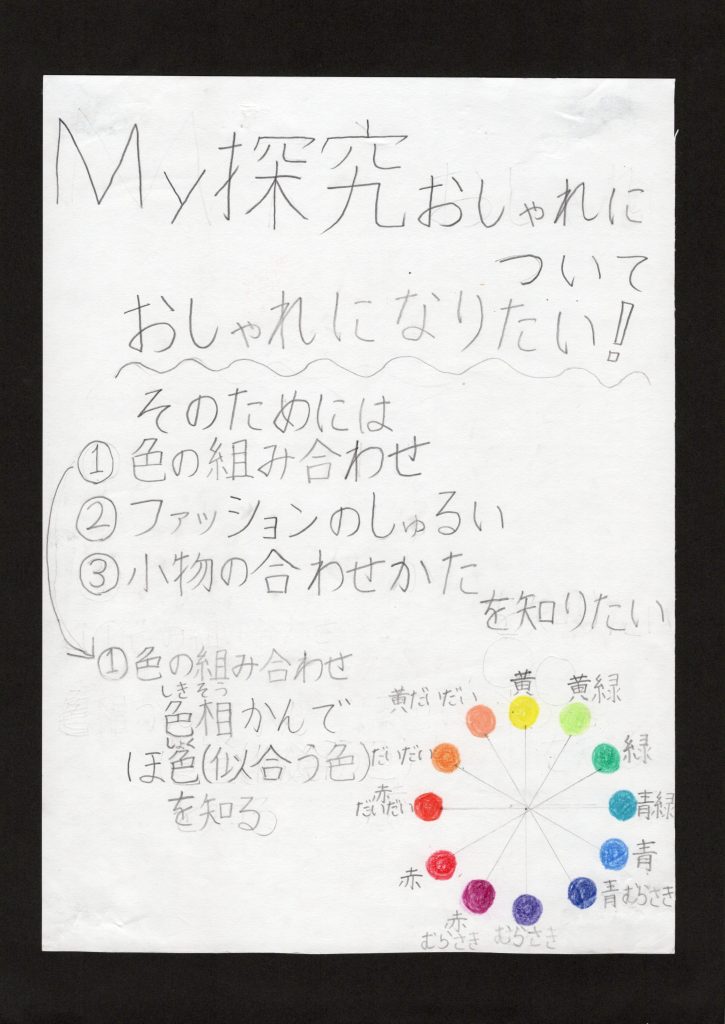 My探究おしゃれに
ついて
おしゃれになりたい!
そのためには
①色の組み合わせ
②ファッションのしゅるい
③小物の合わせかた
を知りたい
①色の組み合わせ
しきそう
色相かんで
しょく
ほ色(似合う色)
を知る
黄
黄緑
緑
青緑
青
青むらさき
むらさき
赤
むらさき
赤
赤
だいだい
だいだい
黄だいだい